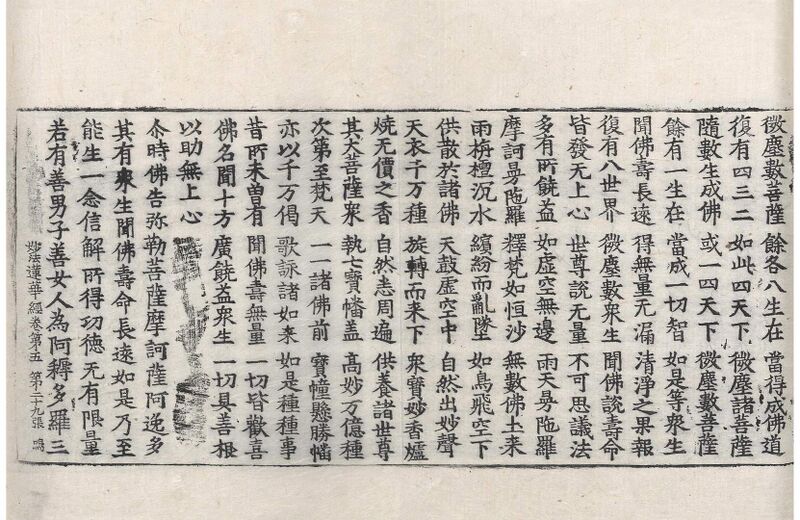 微塵數菩薩 餘各八生在 當得成佛道
復有四三二 如此四天下 微塵諸菩薩
隨數生成佛 或一四天下 微塵數菩薩
餘有一生在 當成一切智 如是等衆生
聞佛壽長遠 得無量无漏 清淨之果報
復有八世界 微塵數衆生 聞佛說壽命
皆發无上心 世尊說无量 不可思議法
多有所饒益 如虛空無邊 雨天曼陁羅
摩訶曼陁羅 釋梵如恒沙 無數佛土來
雨栴檀沉水 繽紛而亂墜 如鳥飛空下
供散於諸佛 天鼓虛空中 自然出妙聲
天衣千万種 旋轉而來下 衆寶妙香爐
燒无價之香 自然悉周遍 供養諸世尊
其大菩薩衆 執七寶幡盖 高妙万億種
次第至梵天 一一諸佛前 寶幢懸勝幡
亦以千万偈 歌詠諸如來 如是種種事
昔所未曾有 聞佛壽無量 一切皆歡喜
佛名聞十方 廣饒益衆生 一切具善根
以助無上心
尒時佛告弥勒菩薩摩訶薩阿逸多
其有衆生聞佛壽命長遠如是乃至
能生一念信解所得功德无有限量
若有善男子善女人為阿耨多羅三
妙法蓮華經卷第五 第二十九張 鳴